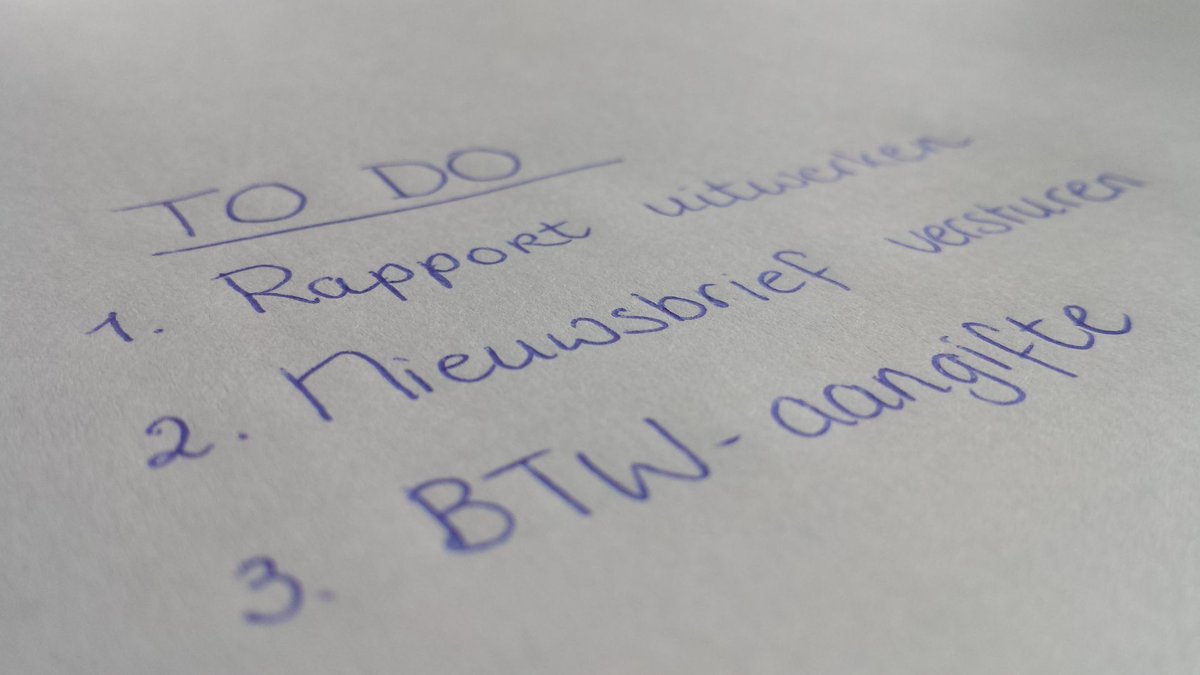 TO DO
1. Rapport uitwerken
2. Nieuwsbrief versturen
3. BTW-aangifte